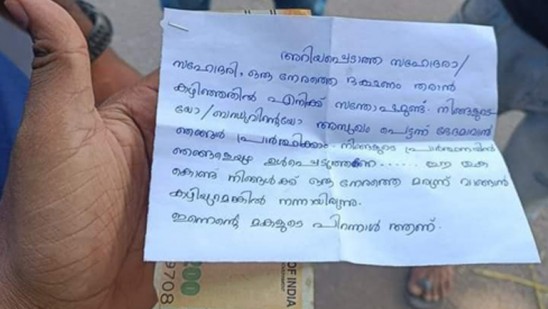 അറിയപ്പെടാത്ത സഹോദരാ/
സഹോദരി, ഒരു നേരത്തെ ഭക്ഷണം തരാൻ
കഴിഞ്ഞതിൽ എനിക്ക് സന്തോഷമുണ്ട്. നിങ്ങളുടെ
യോ/ബന്ധുവിന്റെയോ അസുഖം പെട്ടന്ന് ഭേദമാവാൻ
ഞങ്ങൾ പ്രാർത്ഥിക്കാം. നിങ്ങളുടെ പ്രാർത്ഥനയിൽ
ഞങ്ങളെയും ഉൾപെടുത്തണേ...... ഈ തുക
കൊണ്ട് നിങ്ങൾക്ക് ഒരു നേരത്തെ മരുന്ന് വാങ്ങാൻ
കഴിയുമെങ്കിൽ നന്നായിരുന്നു.
ഇന്നെന്റെ മകളുടെ പിറന്നാൾ ആണ്.
OF INDIA
200
9708